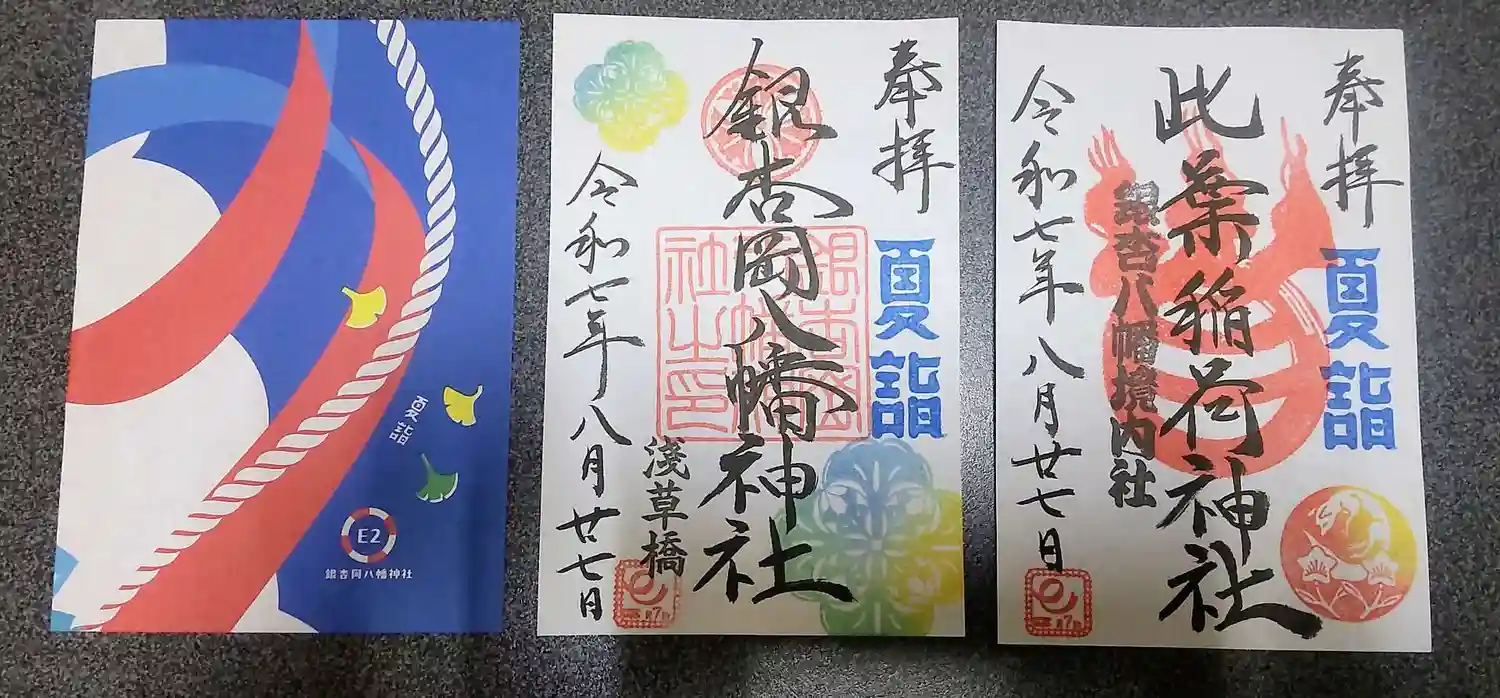 夏詣
E2
銀杏岡八幡神社
奉拝
夏詣
銀杏岡八幡神社
銀杏岡八幡神社之印
淺草橋
令和七年八月廿七日
奉拝
夏詣
此葉稲荷神社
銀杏八幡境内社
令和七年八月廿七日